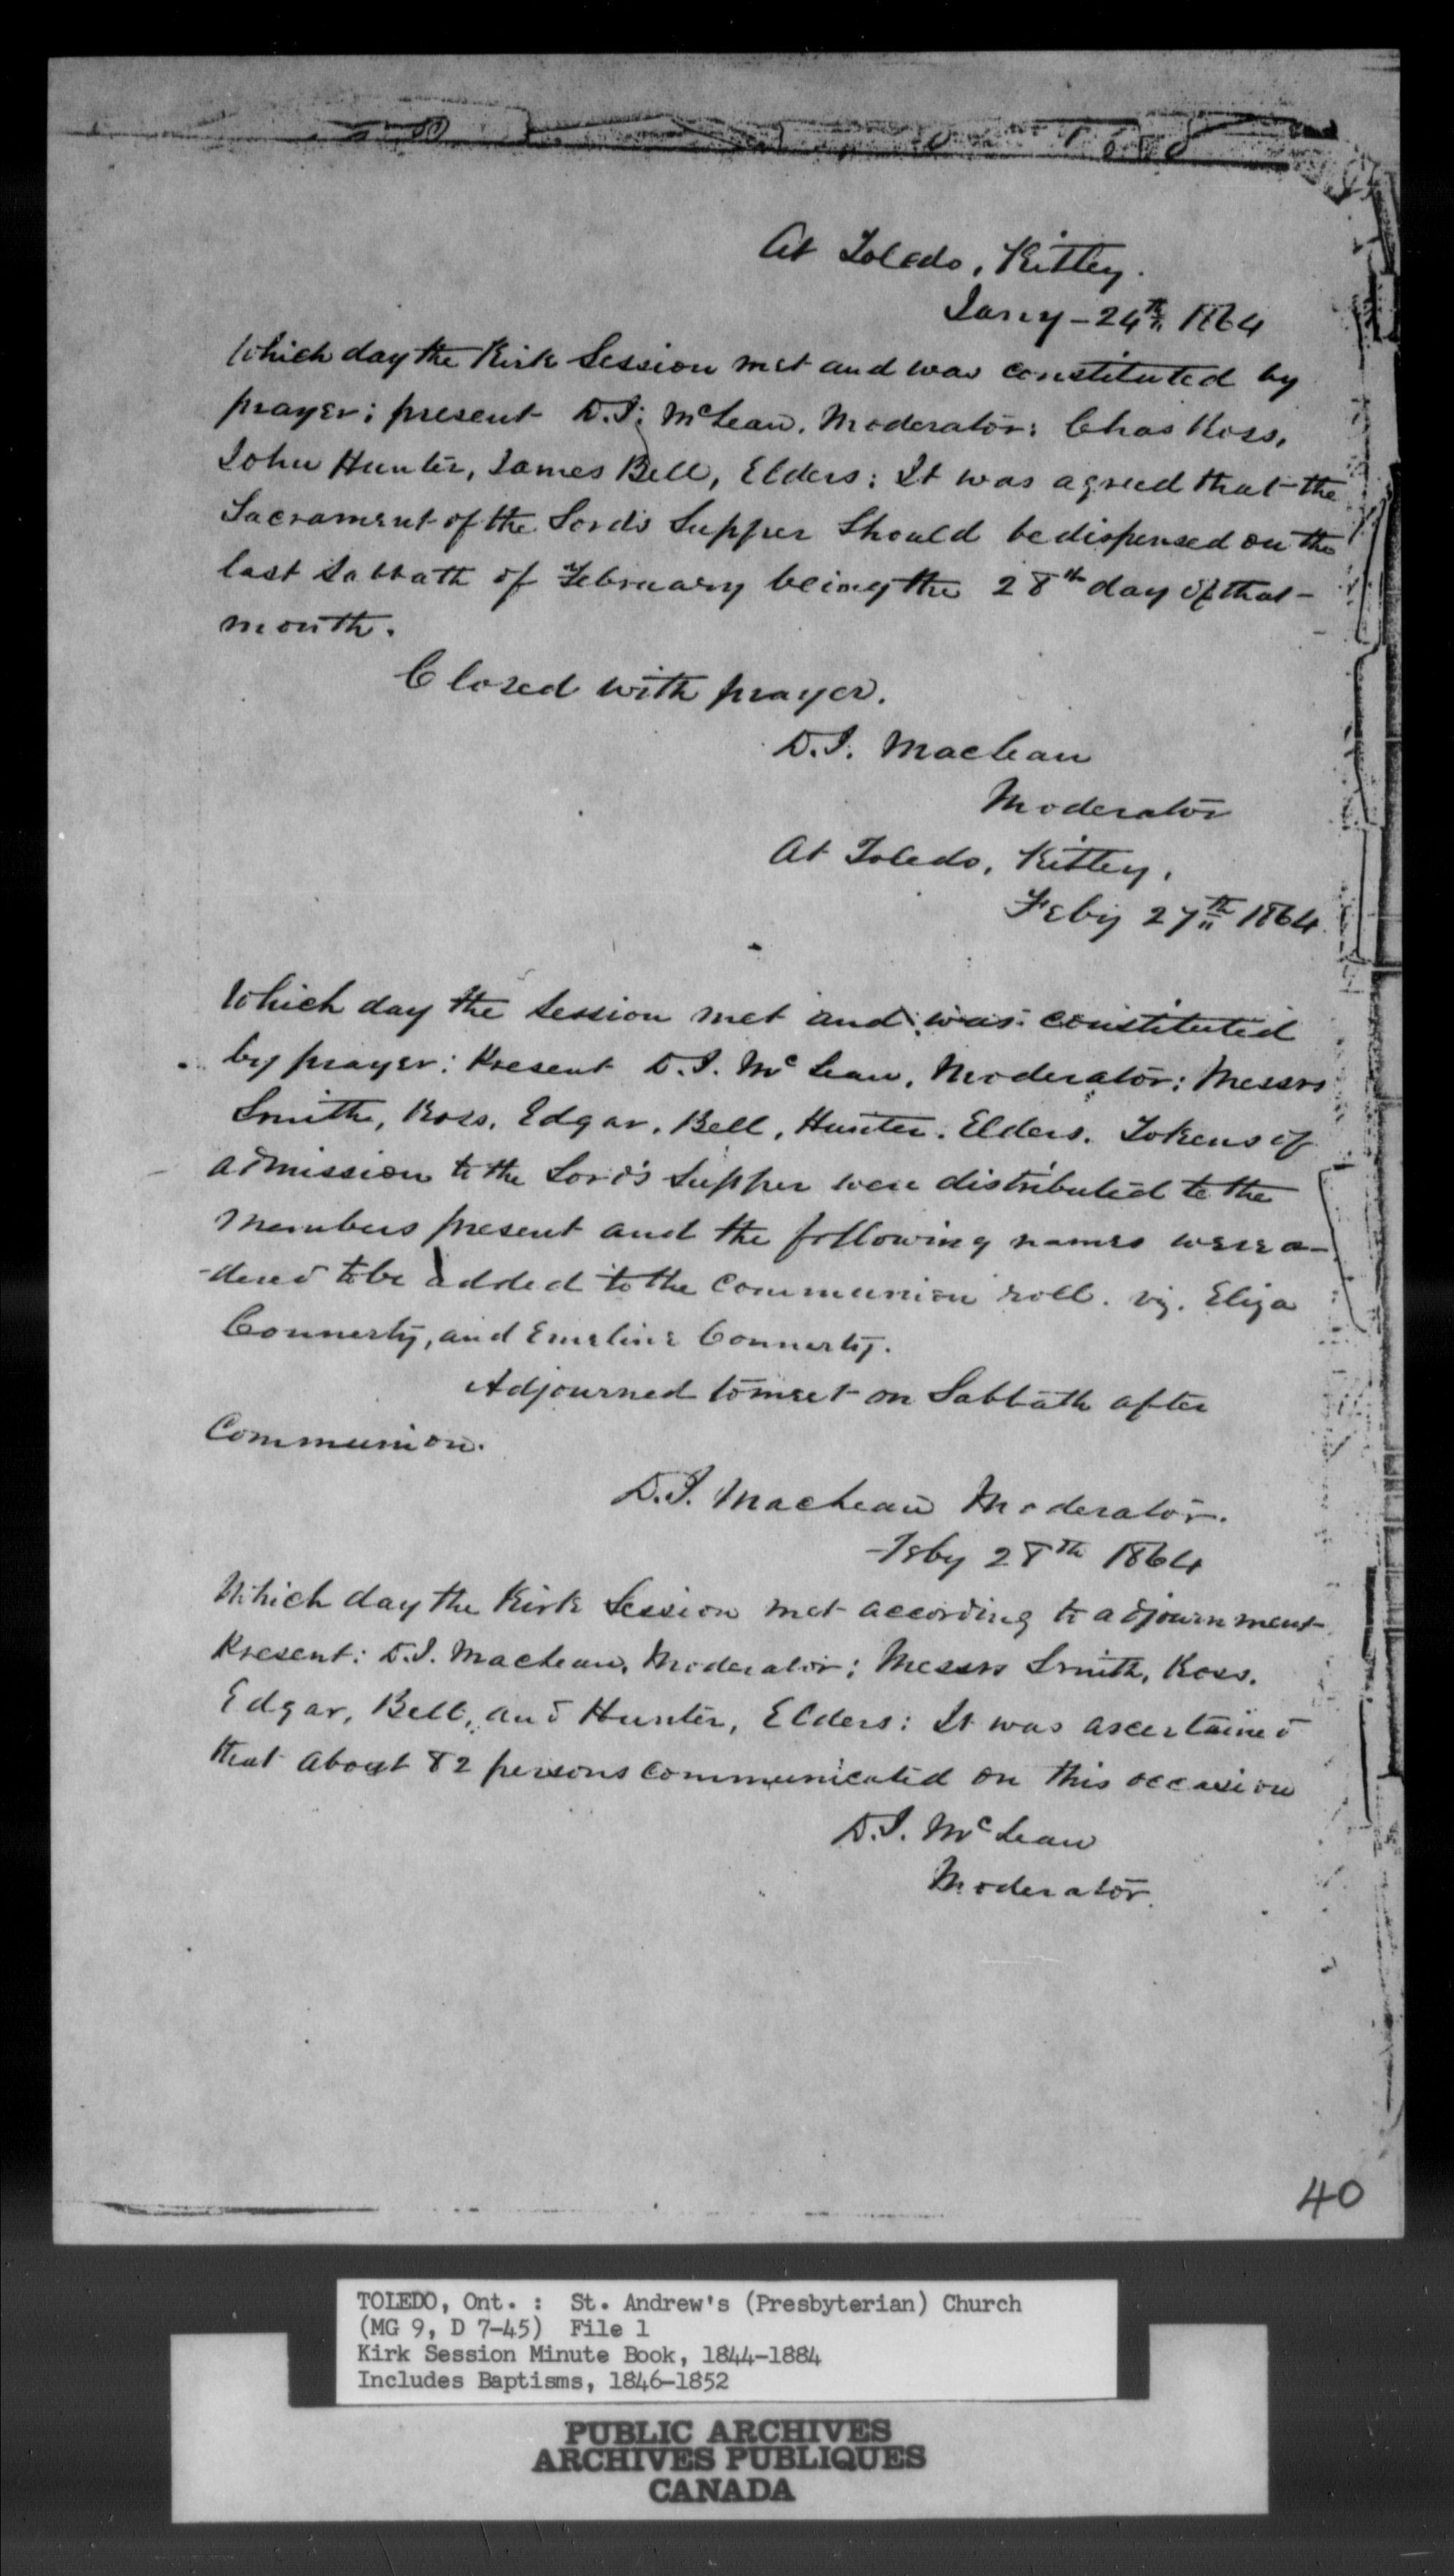 At Toledo, Kitley.
Jany - 24th 1864
Which day the Kirk Session met and was constituted by
prayer; present D.J. McLean, Moderator: Chas Ross,
John Hunter, James Bell, Elders: It was agreed that the
Sacrament of the Lord's Supper should be dispensed on the
last Sabbath of February being the 28th day of that
month.
Closed with prayer.
D.J. MacLean
Moderator
At Toledo, Kitley,
Feby 27th 1864
Which day the Session met and was constituted
by prayer: Present D.J. McLean, Moderator: Messrs
Smith, Ross, Edgar, Bell, Hunter. Elders. Tokens of
admission to the Lord's Supper were distributed to the
Members present and the following names were o-
-dered to be added to the Communion roll. viz. Eliza
Connerty, and Emeline Connerty.
Adjourned to meet on Sabbath after
Communion.
D.J. MacLean Moderator.
Feby 28th 1864
Which day the Kirk Session met according to adjournment
Present: D.J. MacLean, Moderator; Messrs Smith, Ross.
Edgar, Bell, and Hunter, Elders: It was ascertained
that about 82 persons communicated on this occasion
D.J. McLean
Moderator.
40
TOLEDO, Ont. : St. Andrew's (Presbyterian) Church
(MG 9, D 7-45) File 1
Kirk Session Minute Book, 1844-1884
Includes Baptisms, 1846-1852
PUBLIC ARCHIVES
ARCHIVES PUBLIQUES
CANADA